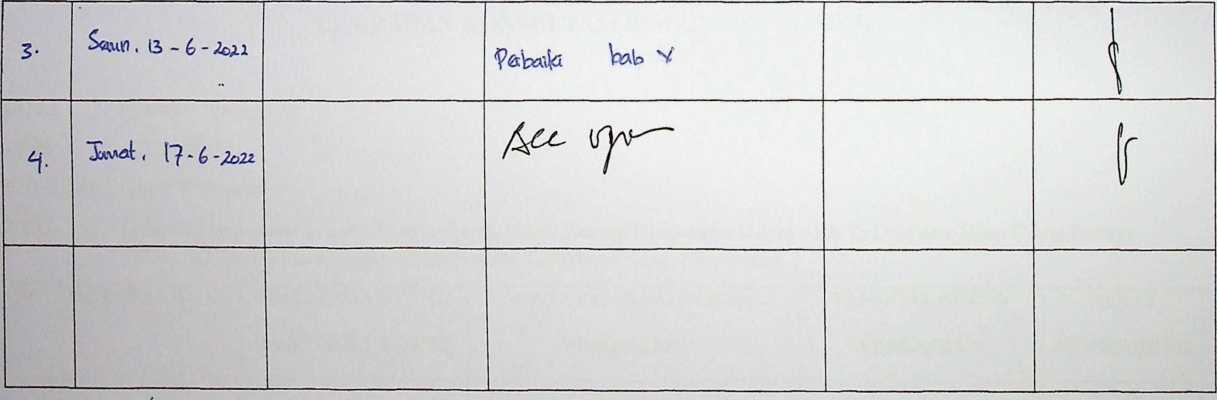 3. Senin, 13-6-2022 Perbaiki bab V
4. Jumat, 17-6-2022 Acc ujian